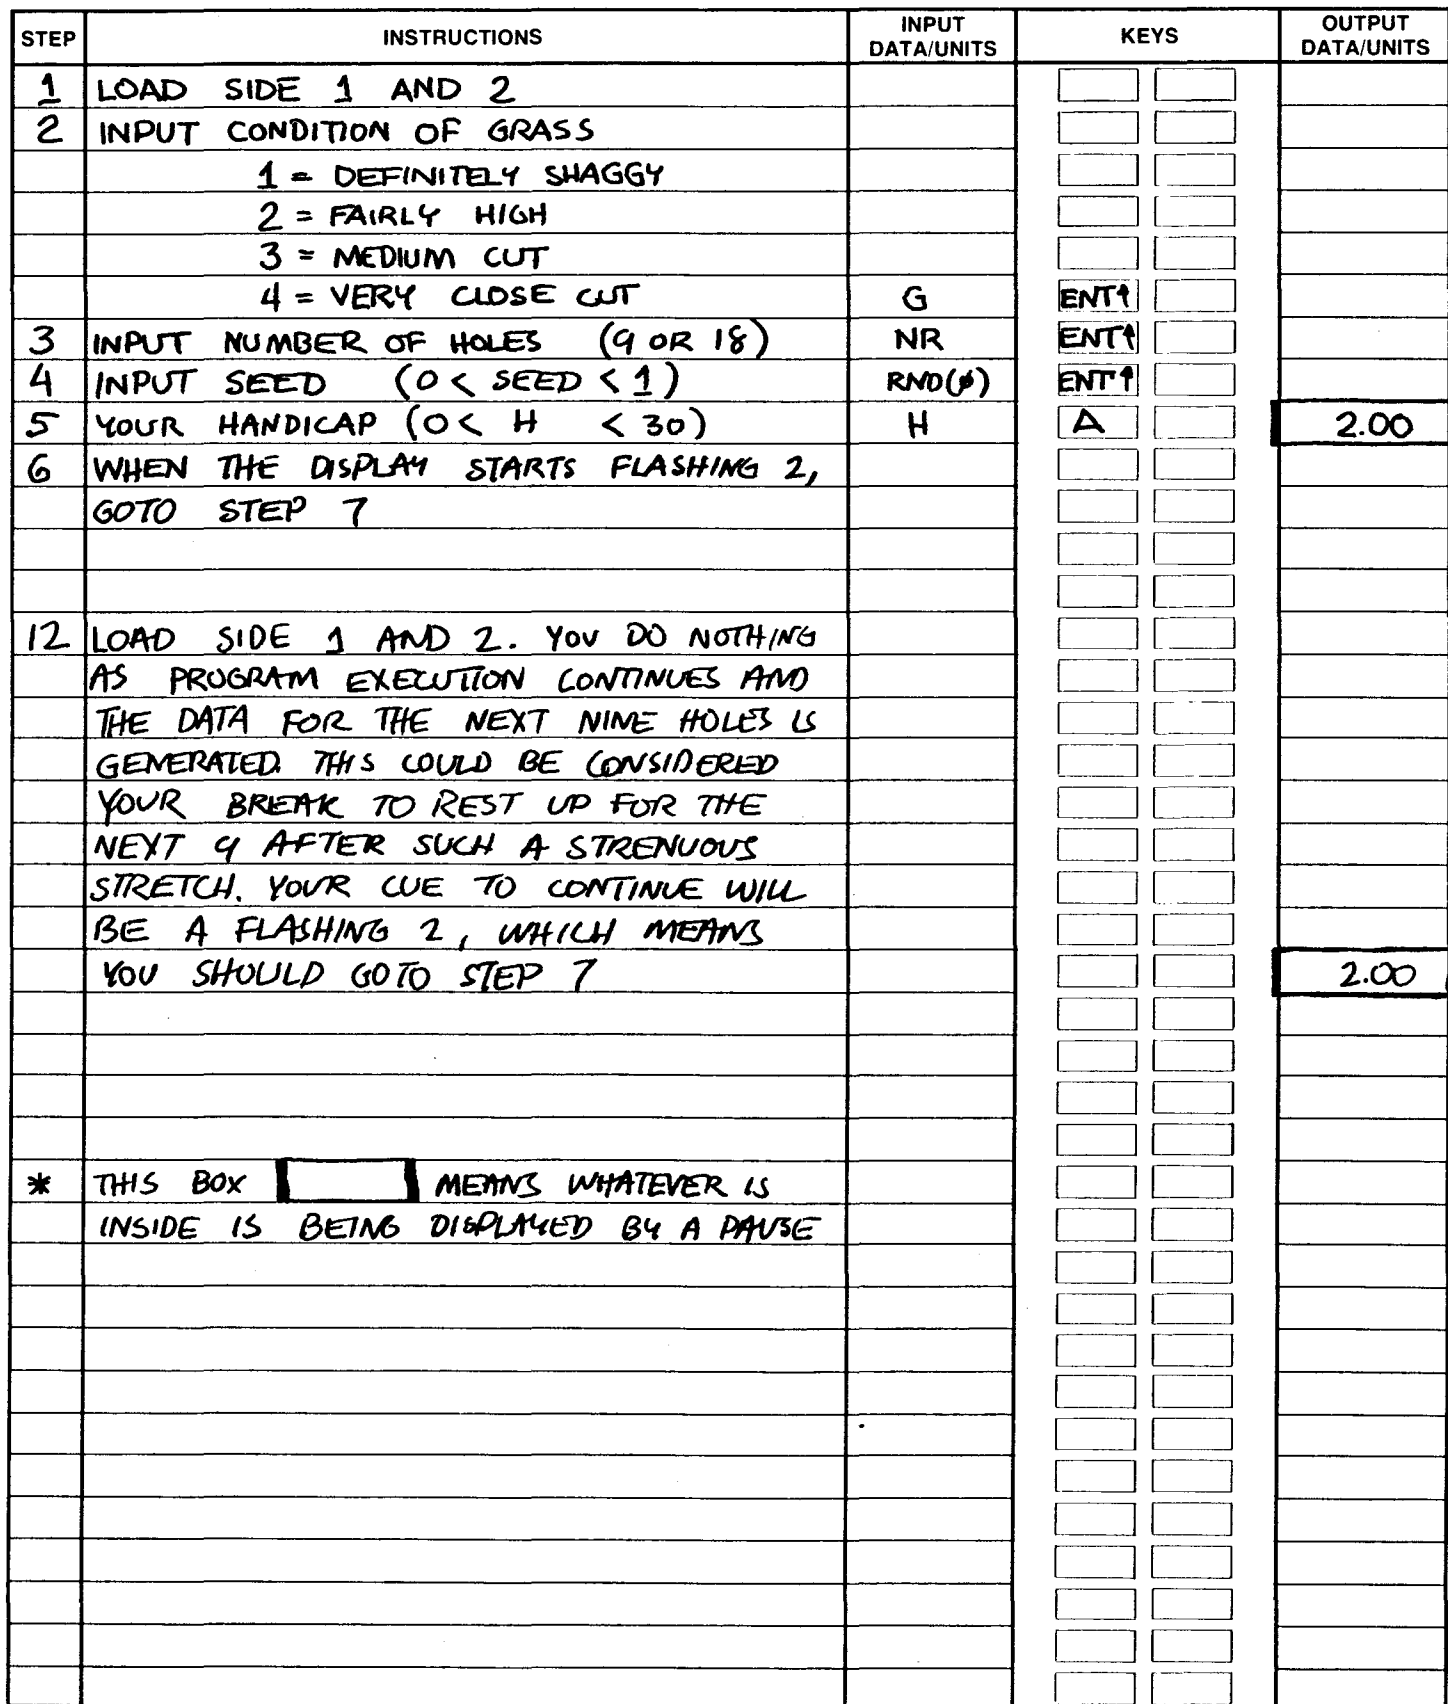 STEP INSTRUCTIONS INPUT DATA/UNITS KEYS OUTPUT DATA/UNITS
1 LOAD SIDE 1 AND 2
2 INPUT CONDITION OF GRASS
1 = DEFINITELY SHAGGY
2 = FAIRLY HIGH
3 = MEDIUM CUT
4 = VERY CLOSE CUT G ENT↑
3 INPUT NUMBER OF HOLES (9 OR 18) NR ENT↑
4 INPUT SEED (0 < SEED < 1) RND(0) ENT↑
5 YOUR HANDICAP (0 < H < 30) H A 2.00
6 WHEN THE DISPLAY STARTS FLASHING 2,
GOTO STEP 7
12 LOAD SIDE 1 AND 2. YOU DO NOTHING
AS PROGRAM EXECUTION CONTINUES AND
THE DATA FOR THE NEXT NINE HOLES IS
GENERATED. THIS COULD BE CONSIDERED
YOUR BREAK TO REST UP FOR THE
NEXT 9 AFTER SUCH A STRENUOUS
STRETCH. YOUR CUE TO CONTINUE WILL
BE A FLASHING 2, WHICH MEANS
YOU SHOULD GOTO STEP 7 2.00
* THIS BOX MEANS WHATEVER IS
INSIDE IS BEING DISPLAYED BY A PAUSE